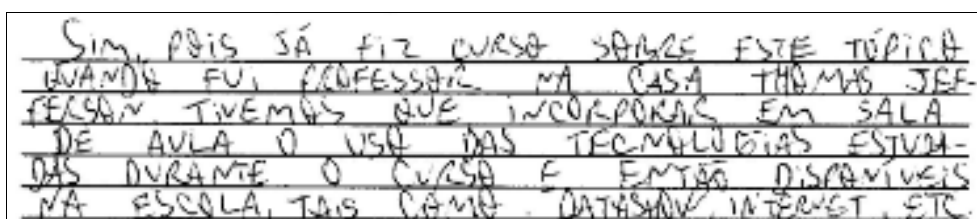 SIM, POIS JÁ FIZ CURSO SOBRE ESTE TÓPICO
QUANDO FUI PROFESSOR NA CASA THOMAS JEF-
FERSON. TIVEMOS QUE INCORPORAR EM SALA
DE AULA O USO DAS TECNOLOGIAS ESTUDA-
DAS DURANTE O CURSO E ENTÃO DISPONÍVEIS
NA ESCOLA, TAIS COMO: DATASHOW, INTERNET, ETC